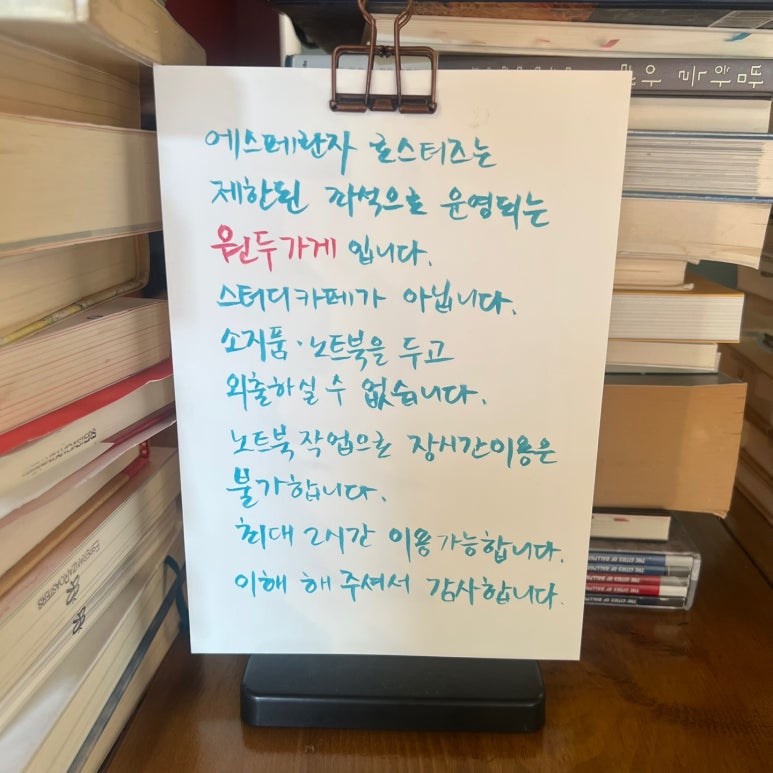 에스페란자 로스터즈는
제한된 좌석으로 운영되는
원두가게 입니다.
스터디카페가 아닙니다.
소지품·노트북을 두고
외출하실 수 없습니다.
노트북작업으로 장시간이용은
불가합니다.
최대 2시간 이용가능합니다.
이해 해 주셔서 감사합니다.
밤하늘 아
ESPERANZA ROASTERS
THE CITIES OF BALLPY
THE CITIES OF BALLPY
THE CITIES OF BALLPY